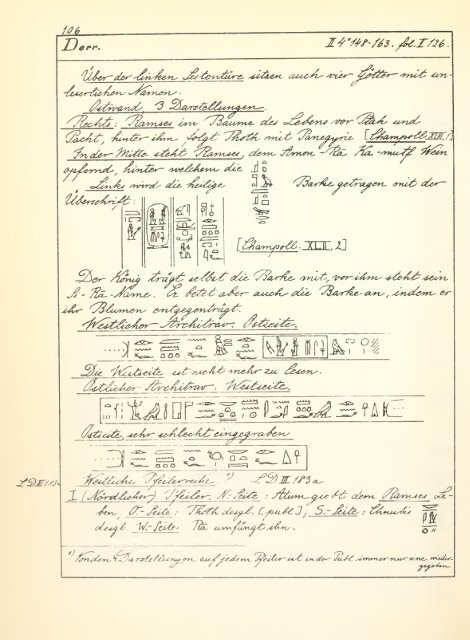 106
Derr. II 4° 148-163. fol. I 126.
Über der linken Seitentüre sitzen auch vier Götter mit un-
leserlichen Namen.
Ostwand, 3 Darstellungen.
Rechts: Ramses im Baume des Lebens vor Ptah und
Pacht, hinter ihm folgt Thoth mit Panegyrie [Champoll.
In der Mitte steht Ramses, dem Amon-Ra Ka-mutf Wein
opfernd, hinter welchem die
Links wird die heilige Barke getragen mit der
Überschrift:
[Champoll. XLII, 2]
Der König trägt selbst die Barke mit, vor ihm steht sein
Si-Ra-Name. Er betet aber auch die Barke an, indem er
ihr Blumen entgegenträgt.
Westlicher Architrav. Ostseite.
Die Westseite ist nicht mehr zu lesen.
Östlicher Architrav. Westseite.
Ostseite, sehr schlecht eingegraben
LD III 183a Westliche Pfeilerreihe. *) LD III 183a
I (Nördlicher) Pfeiler. N.-Seite: Atum giebt dem Ramses Le-
ben, O.-Seite: Thoth desgl. [publ.]; S.-Seite: Chnubis
desgl. W.-Seite: Ra umfängt ihn.
*) Von den 4 Darstellungen auf jedem Pfeiler ist in der Publ. immer nur eine wieder-
gegeben.